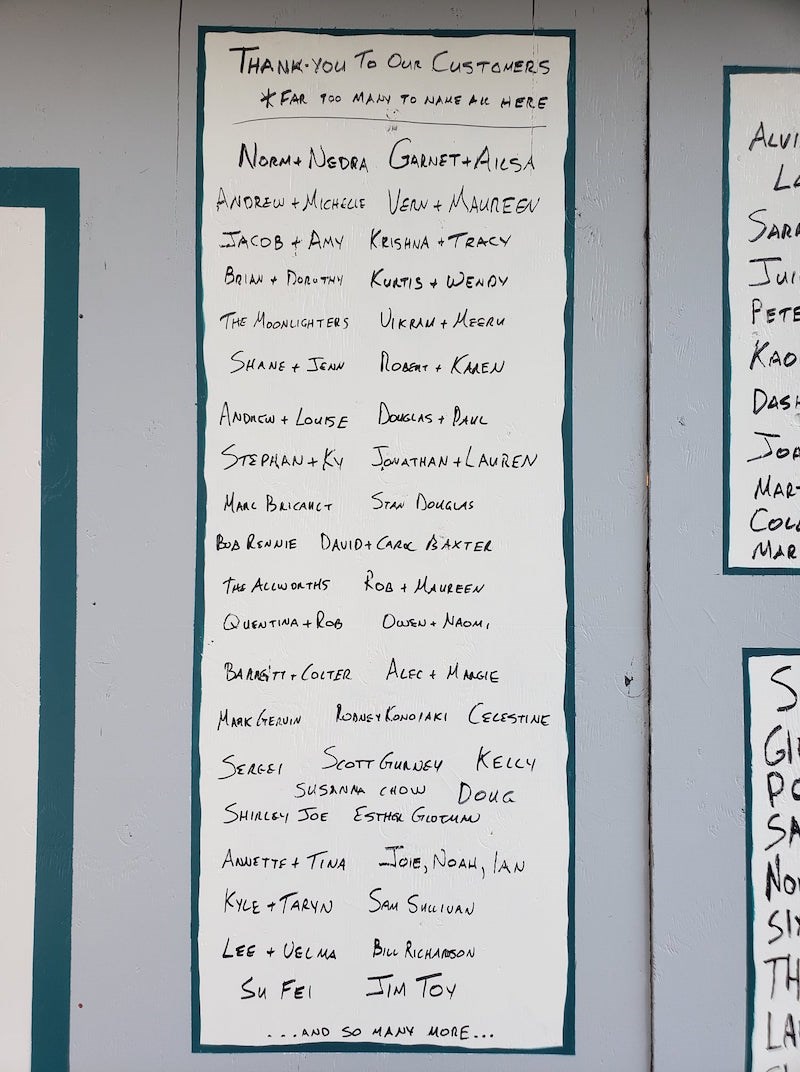 THANK-YOU TO OUR CUSTOMERS
*FAR TOO MANY TO NAME ALL HERE
NORM + NEDRA GARNET + AILSA
ANDREW + MICHELLE VERN + MAUREEN
JACOB + AMY KRISHNA + TRACY
BRIAN + DOROTHY KURTIS + WENDY
THE MOONLIGHTERS VIKRAM + MEERU
SHANE + JENN ROBERT + KAREN
ANDREW + LOUISE DOUGLAS + PAUL
STEPHAN + KY JONATHAN + LAUREN
MARC STAN DOUGLAS
BOB RENNIE DAVID + CAROL BAXTER
THE ALLWORTHS ROB + MAUREEN
QUENTINA + ROB OWEN + NAOMI
+ COLTER ALEC + MARGIE
MARK GERVIN RODNEY CELESTINE
SERGEI SCOTT GURNEY KELLY
SUSANNA CHOW DOUG
SHIRLEY JOE ESTHER
ANNETTE + TINA JOIE, NOAH, IAN
KYLE + TARYN SAM SULLIVAN
LEE + VELMA BILL RICHARDSON
SU FEI JIM TOY
...AND SO MANY MORE...
ALVI
LA
SARA
JUI
PETE
KAO
DASH
JOA
MAR
COL
MAR
S
GI
PO
SA
NO
SI
TH
LA